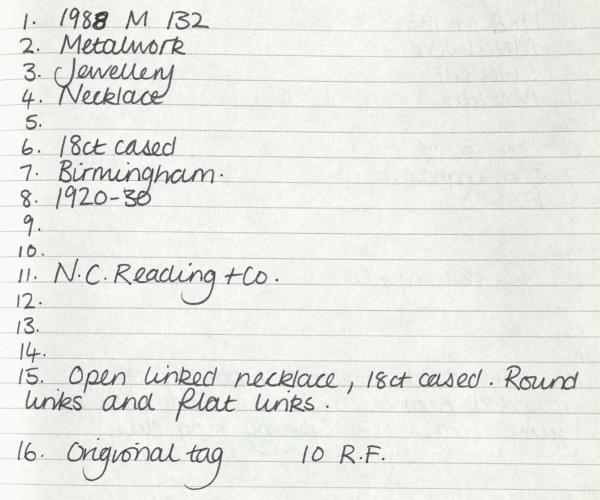 1. 1988 M 132
2. Metalwork
3. Jewellery
4. Necklace
5.
6. 18ct cased
7. Birmingham.
8. 1920-30
9.
10.
11. N.C. Reading + Co.
12.
13.
14.
15. Open linked necklace, 18ct cased. Round
links and flat links.
16. Origional tag 10 R.F.